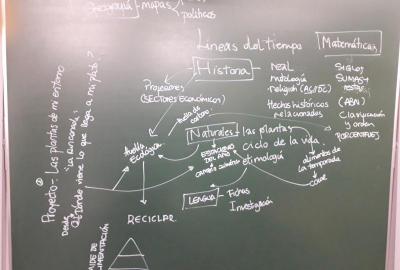 Geografía → mapas
políticos
Líneas del tiempo
Matemáticas
Historia
REAL
mitología
religión (AGPDL)
Hechos históricos
relacionados
SIGLOS
SUMAS y
restas
(ABN)
Clasificación
y orden
PORCENTAJES
Profesiones
(SECTORES ECONÓMICOS)
huella de
carbono
Naturales
las plantas
ciclo de la vida
etimología
ESTACIONES
DEL AÑO
cambio climático
Huella
Ecológica
alimentos de
la temporada
COLAR
RECICLAR
LENGUA
Fichas
Investigación
Proyecto - Las plantas de mi entorno
"La luncanora"
Desde dónde viene lo que llega a mi plato?